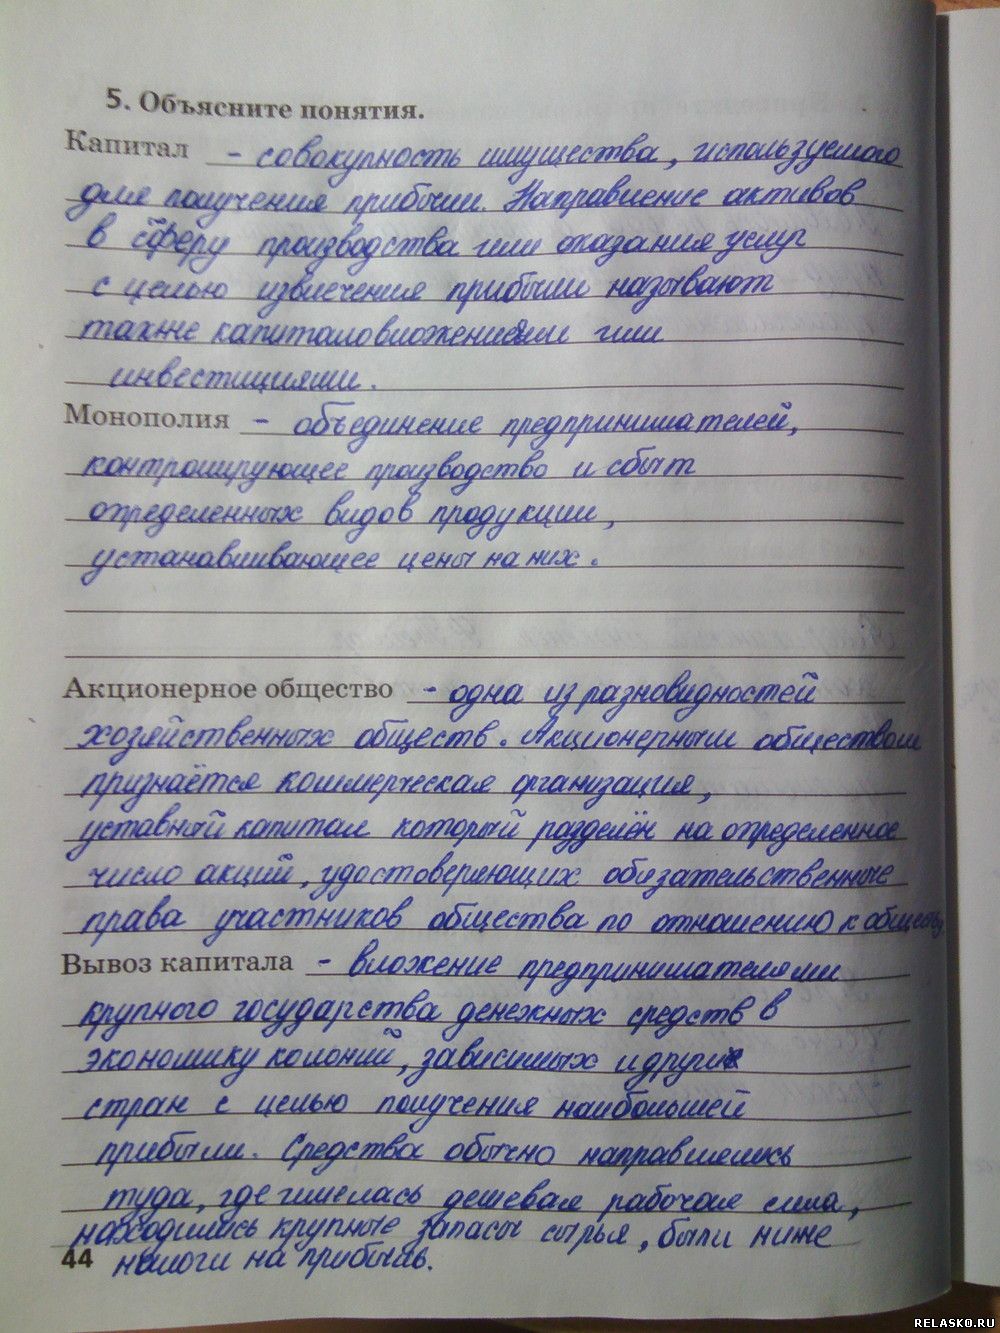 5. Объясните понятия.
Капитал - совокупность имущества, используемого
для получения прибыли. Направление активов
в сферу производства или оказания услуг
с целью извлечения прибыли называют
также капиталовложениями или
инвестициями.
Монополия - объединение предпринимателей,
контролирующее производство и сбыт
определенных видов продукции,
устанавливающее цены на них.
Акционерное общество - одна из разновидностей
хозяйственных обществ. Акционерным обществом
признаётся коммерческая организация,
уставный капитал который разделён на определенное
число акций, удостоверяющих обязательственные
права участников общества по отношению к обществу
Вывоз капитала - вложение предпринимателями
крупного государства денежных средств в
экономику колоний, зависимых и других
стран с целью получения наибольшей
прибыли. Средства обычно направлялись
туда, где имелась дешевая рабочая сила,
находились крупные запасы сырья, были ниже
44 налоги на прибыль.
RELASKO.RU